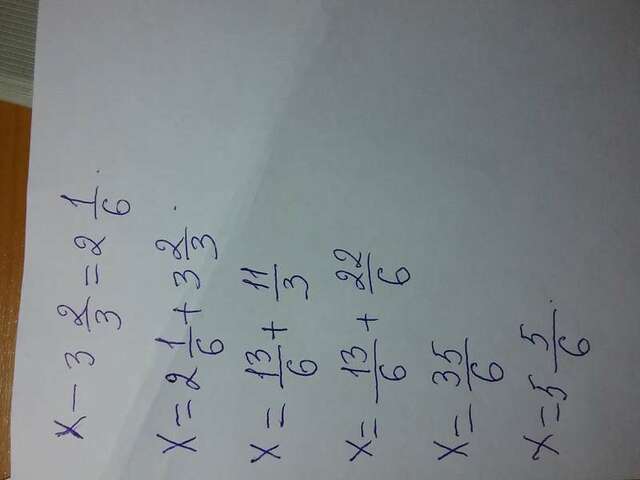 x - 3 2/3 = 2 1/6.
x = 2 1/6 + 3 2/3.
x = 13/6 + 11/3
x = 13/6 + 22/6
x = 35/6
x = 5 5/6.